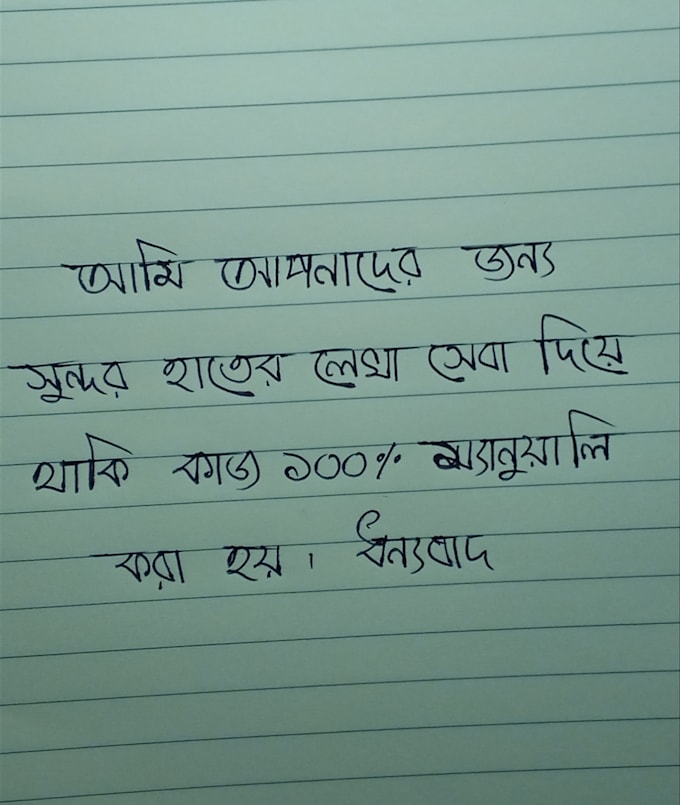 আমি আপনাদের জন্য
সুন্দর হাতের লেখা সেবা দিয়ে
থাকি কাজ ১০০% ম্যানুয়ালি
করা হয়। ধন্যবাদ